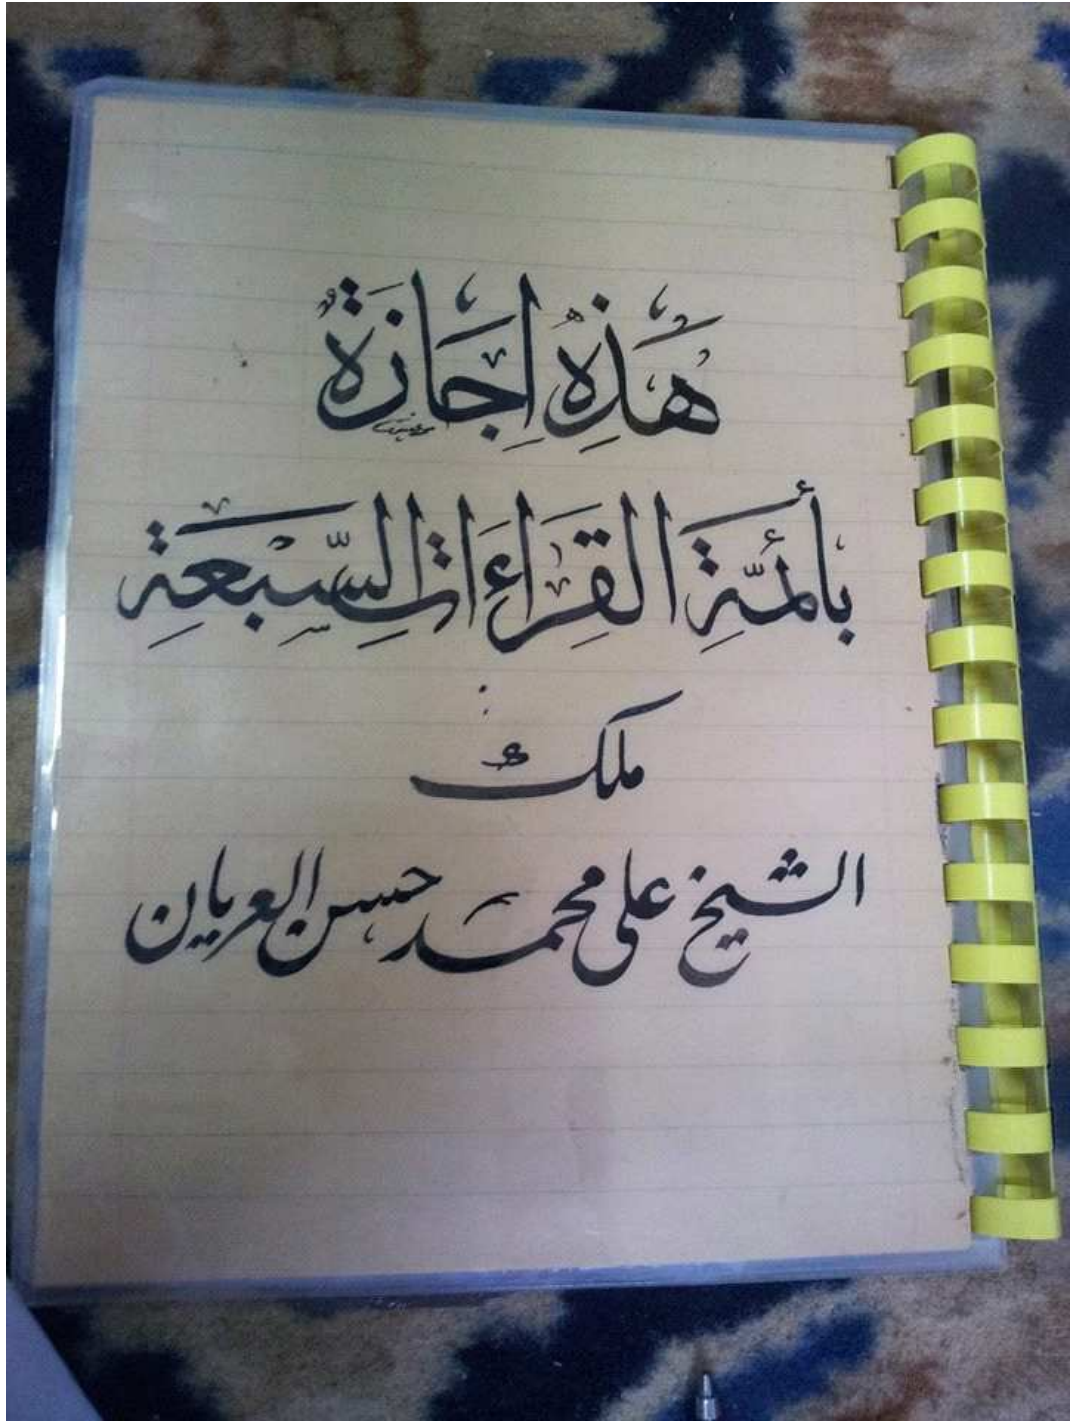 هَذِهِ إِجَازَةٌ
بأئمَّةِ القِرَاءَاتِ السَّبعَةِ
ملك
الشيخ على محمد حسن العريان